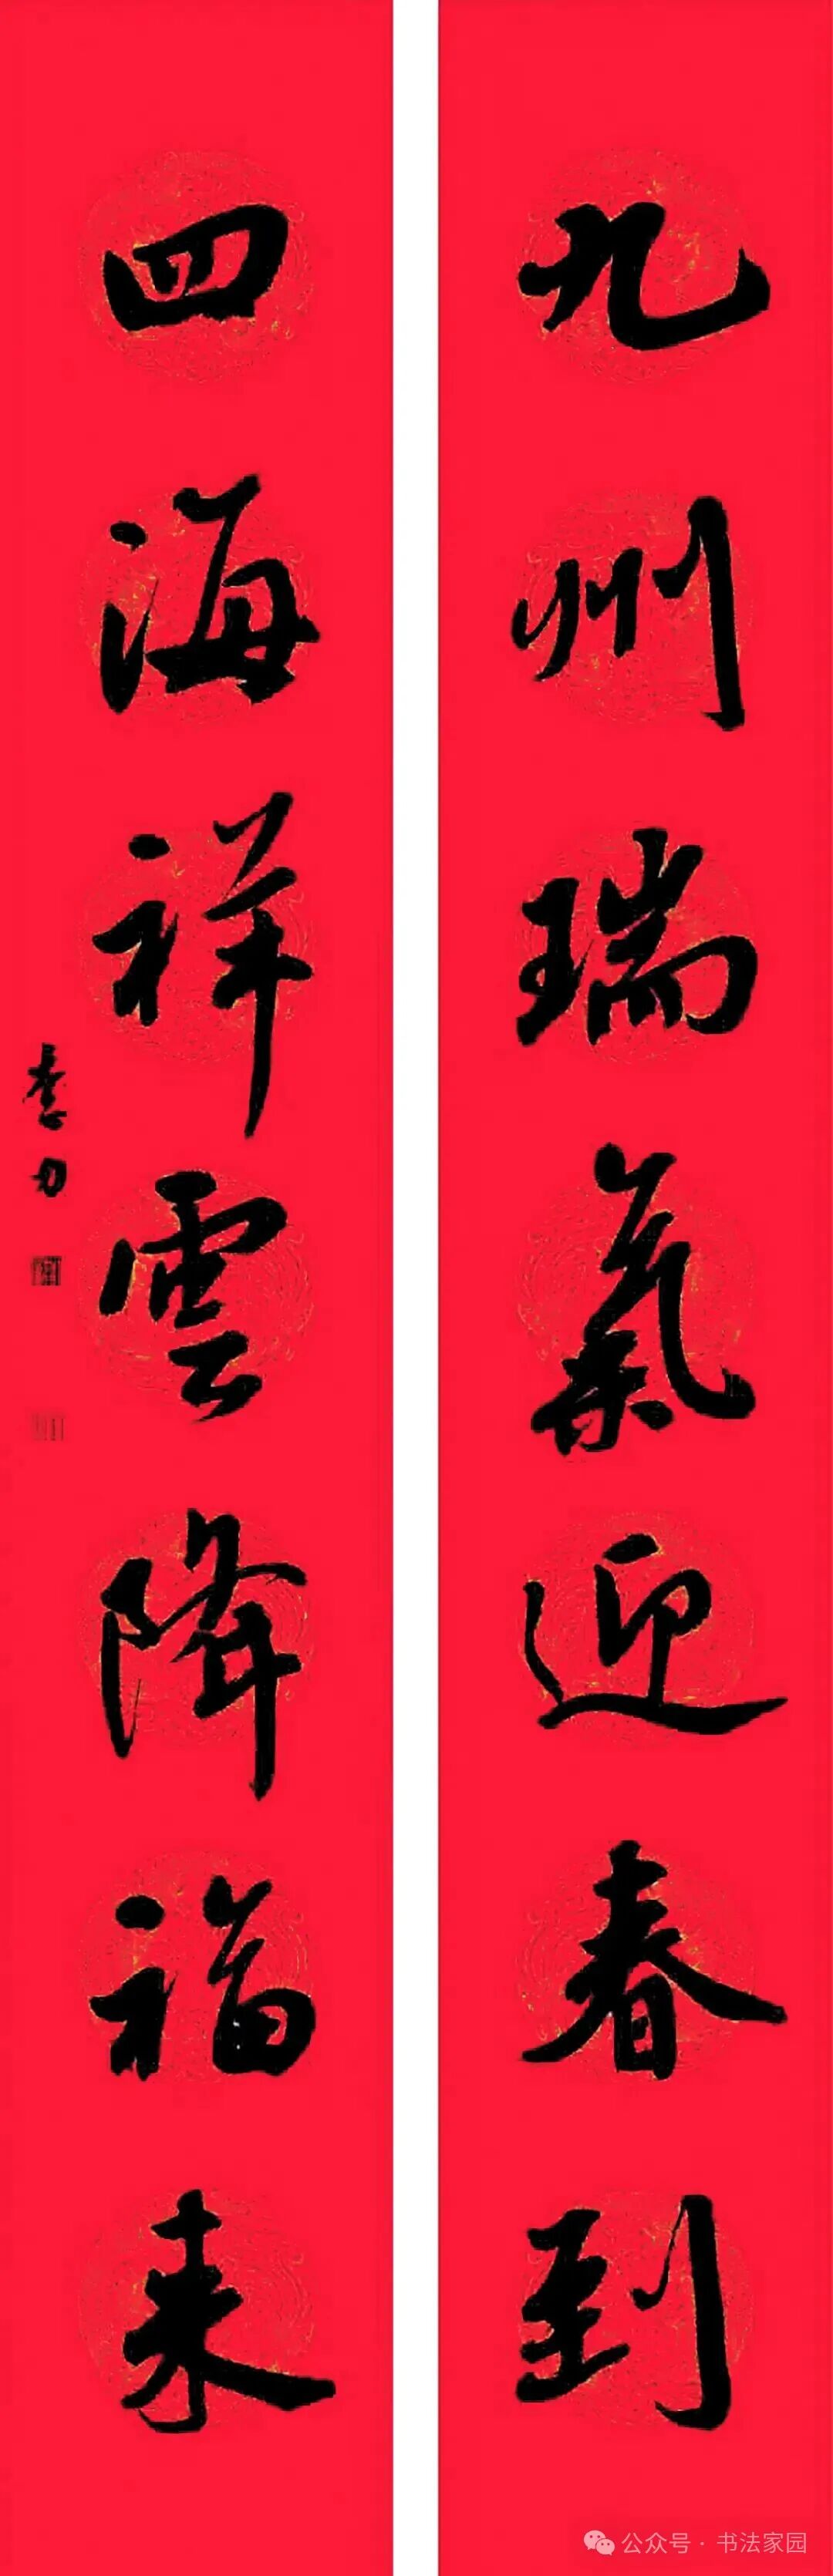 九州瑞氣迎春到
四海祥雲降福来
公众号 · 书法家园